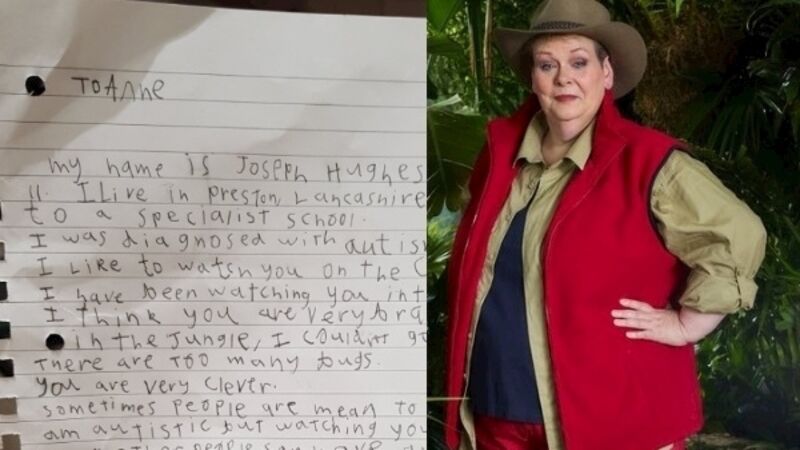 TO Anne
my name is Joseph Hughes
11. I Live in Preston, Lancashire
to a specialist school.
I was diagnosed with autis
I Like to watsh you on the C
I have been watching you int
I think you are very bra
in the Jungle, I Couldnt go
There are TOO many bugs.
you are very Clever.
sometimes People are mean to
am autistic but watching you